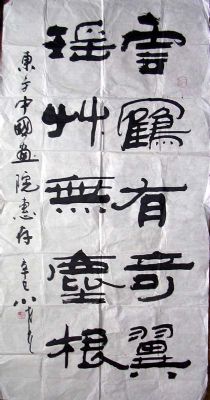 雲鶴有奇翼
瑶艸無塵根
東方中國画院惠存
辛巳